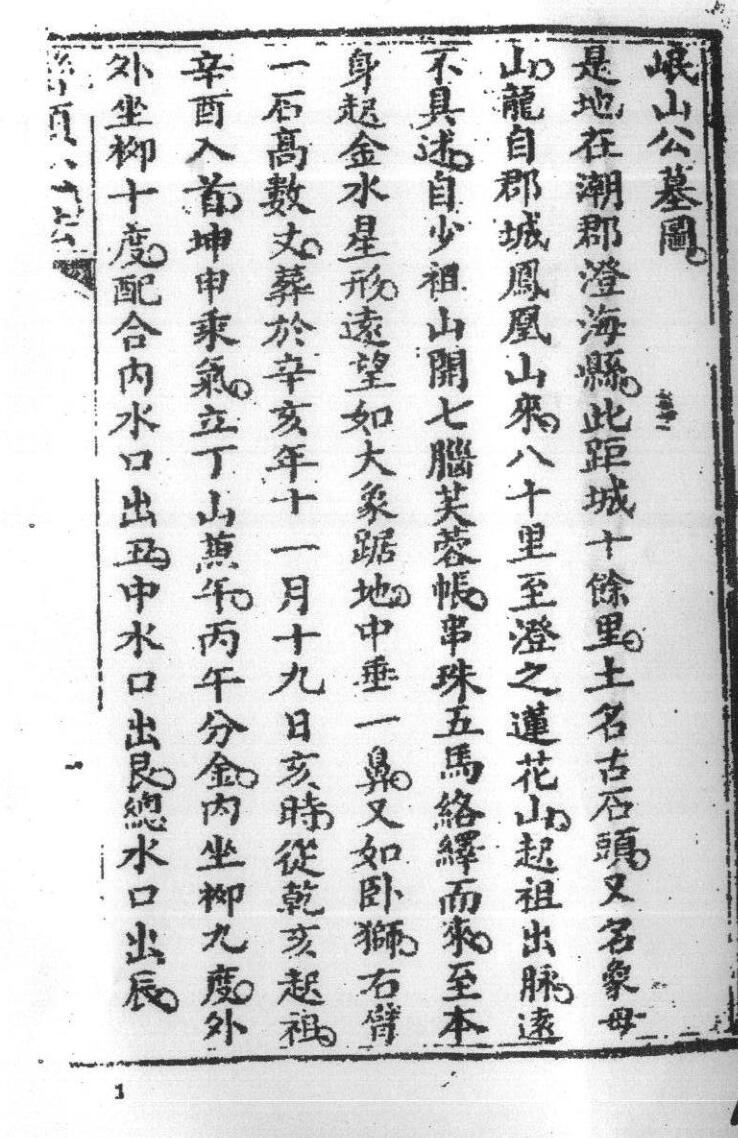 岷山公墓圖○
是地在潮郡澄海縣○此距城十餘里○土名古石頭○又名象母
山○龍自郡城鳳凰山來○八十里至澄之蓮花山○起祖出脉○遠
不具述○自少祖山開七腦芙蓉帳○串珠五馬絡繹而來○至本
身起金水星形○遠望如大象踞地○中垂一鼻○又如卧獅○右臂
一石高數丈○葬於辛亥年十一月十九日亥時○從乾亥起祖○
辛酉入首○坤申乘氣○立丁山蒹午○丙午分金○內坐柳九度○外
外坐柳十度○配合內水口出丑○中水口出艮○總水口出辰○
1